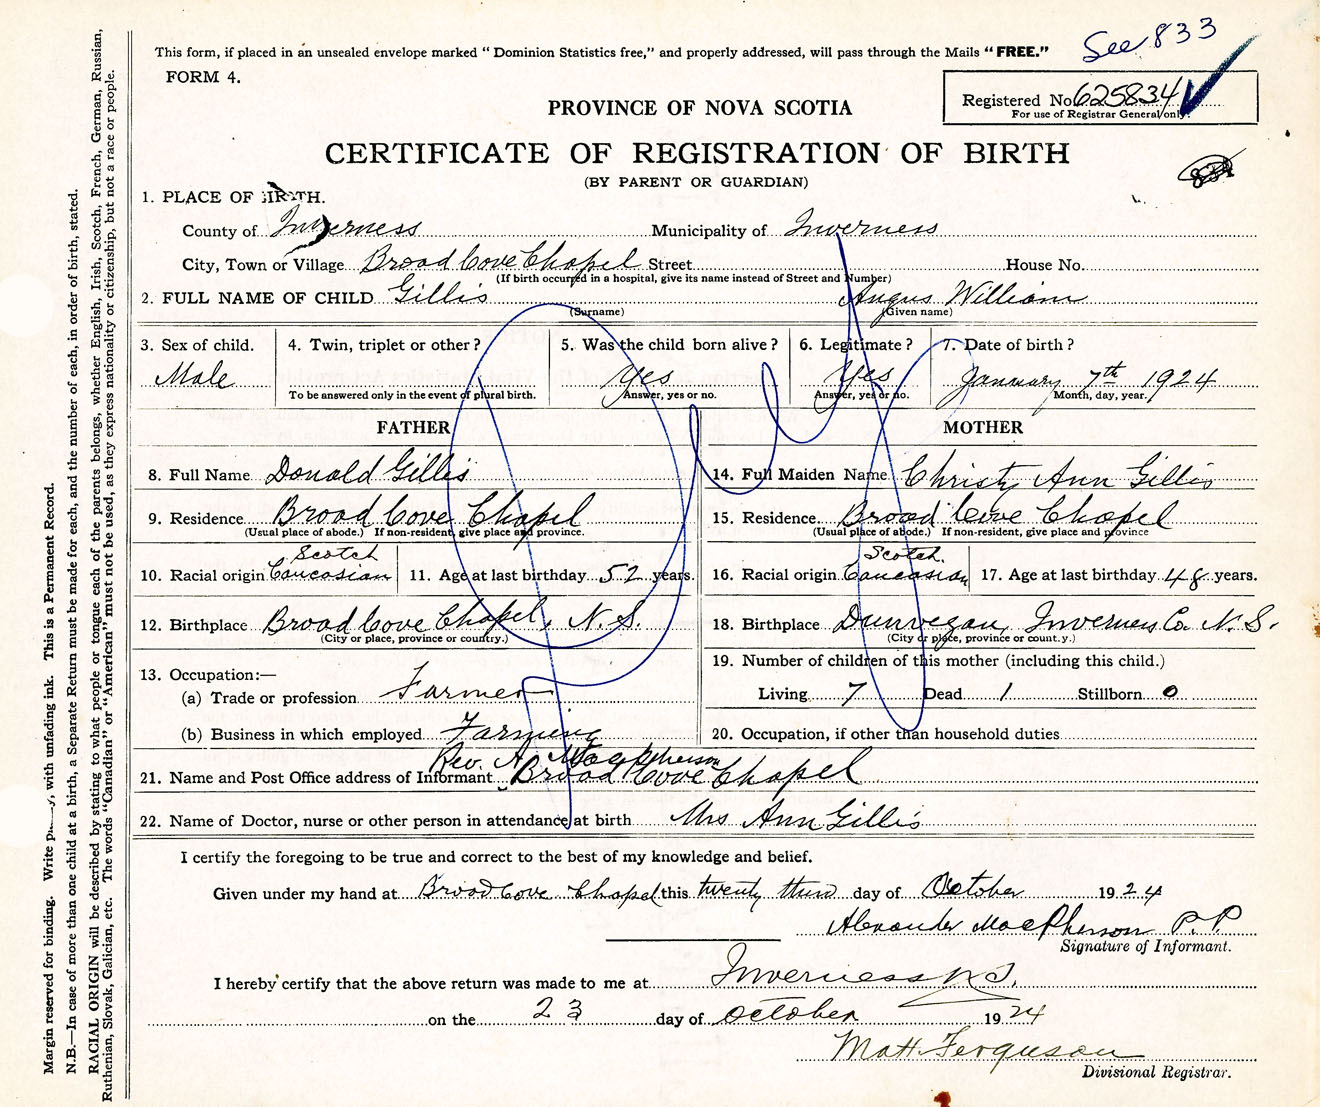 See 833
This form, if placed in an unsealed envelope marked "Dominion Statistics free," and properly addressed, will pass through the Mails "FREE."
FORM 4.
Registered No. 625834
For use of Registrar General only.
PROVINCE OF NOVA SCOTIA
CERTIFICATE OF REGISTRATION OF BIRTH
(BY PARENT OR GUARDIAN)
1. PLACE OF BIRTH.
County of Inverness Municipality of Inverness
City, Town or Village Broad Cove Chapel Street House No.
(If birth occurred in a hospital, give its name instead of Street and Number)
2. FULL NAME OF CHILD Gillis Angus William
(Surname) (Given name)
3. Sex of child. 4. Twin, triplet or other? 5. Was the child born alive? 6. Legitimate? 7. Date of birth?
Male Yes Yes January 7th 1924
To be answered only in the event of plural birth. Answer, yes or no. Answer, yes or no. Month, day, year.
FATHER MOTHER
8. Full Name Donald Gillis 14. Full Maiden Name Christy Ann Gillis
9. Residence Broad Cove Chapel 15. Residence Broad Cove Chapel
(Usual place of abode.) If non-resident, give place and province. (Usual place of abode.) If non-resident, give place and province
Scotch Scotch.
10. Racial origin Caucasian 11. Age at last birthday 52 years. 16. Racial origin Caucasian 17. Age at last birthday 48 years.
12. Birthplace Broad Cove Chapel, N. S. 18. Birthplace Dunvegan, Inverness Co. N. S.
(City or place, province or country.) (City or place, province or count.y.)
13. Occupation:— 19. Number of children of this mother (including this child.)
(a) Trade or profession Farmer Living 7 Dead 1 Stillborn 0
(b) Business in which employed Farming 20. Occupation, if other than household duties
Rev. A. MacPherson
21. Name and Post Office address of Informant Broad Cove Chapel
22. Name of Doctor, nurse or other person in attendance at birth Mrs Ann Gillis
I certify the foregoing to be true and correct to the best of my knowledge and belief.
Given under my hand at Broad Cove Chapel this twenty third day of October 1924
Alexander MacPherson P.P
Signature of Informant.
I hereby certify that the above return was made to me at Inverness N.S.
on the 23 day of October 1924
Matt. Ferguson
Divisional Registrar.
Margin reserved for binding. Write with unfading ink. This is a Permanent Record.
N.B.—In case of more than one child at a birth, a Separate Return must be made for each, and the number of each, in order of birth, stated.
RACIAL ORIGIN will be described by stating to what people or tongue each of the parents belongs, whether English, Irish, Scotch, French, German, Russian,
Ruthenian, Slovak, Galician, etc. The words "Canadian" or "American" must not be used, as they express nationality or citizenship, but not a race or people.